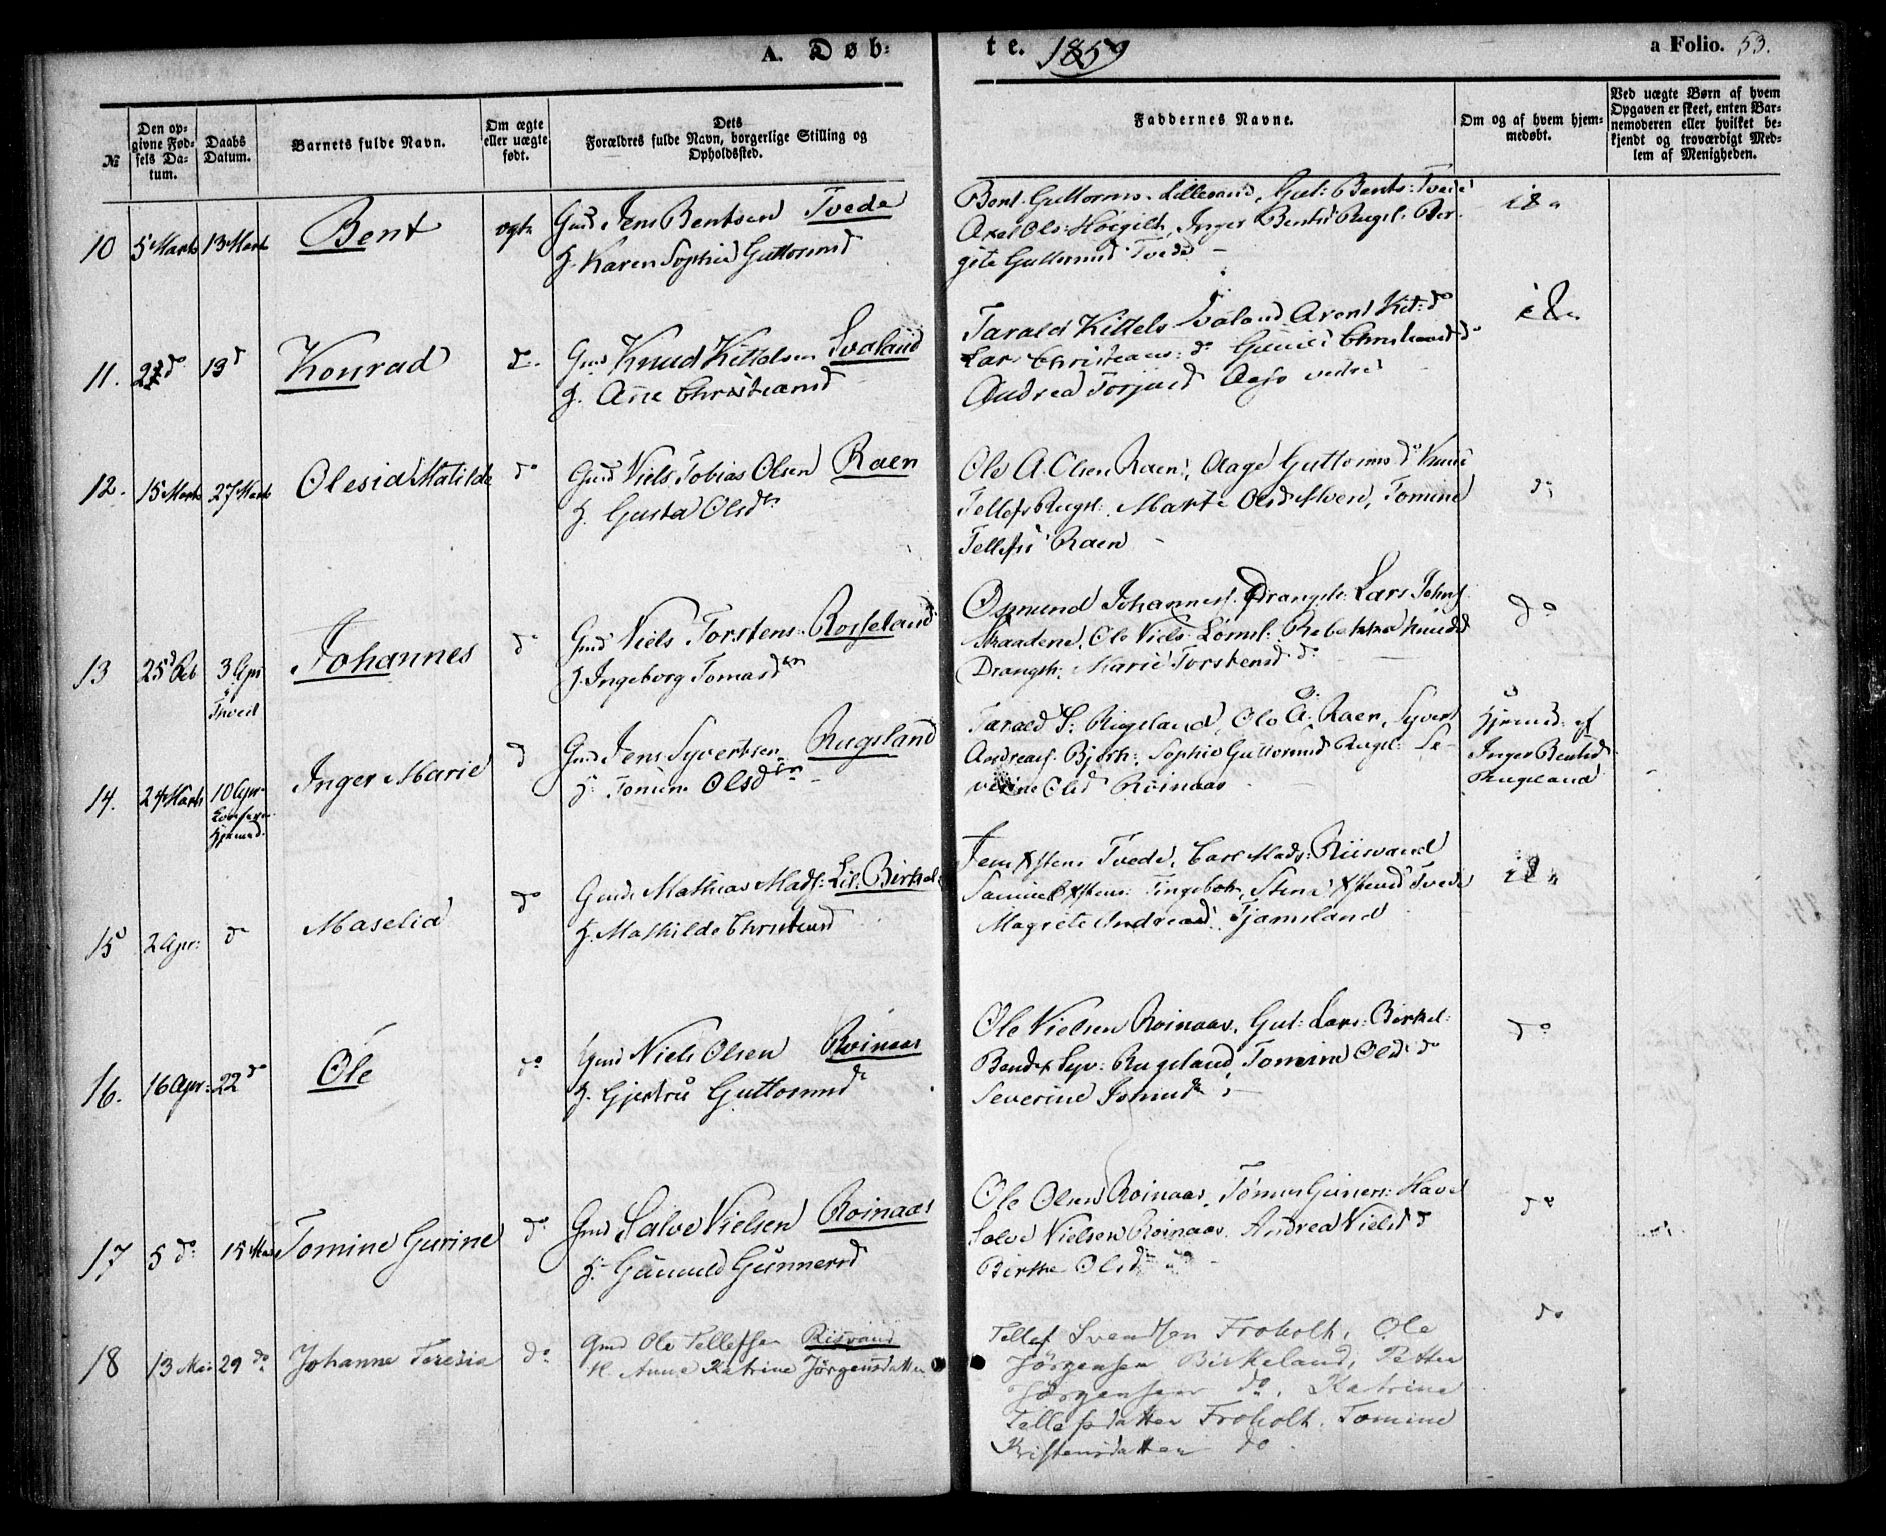 A. Døb-
te. 1859
a Folio. 53.
№
Den opgivne Fødsels Datum.
Daabs Datum.
Barnets fulde Navn.
Om ægte eller uægte født.
Dets Forældres fulde Navn, borgerlige Stilling og Opholdssted.
Faddernes Navne.
Om og af hvem hjemmedøbt.
Ved uægte Børn af hvem Opgaven er skeet, enten Barnemoderen eller hvilket bekjendt og troværdigt Medlem af Menigheden.
10 5 Marts 13 Marts Bent ægte Gmd Jens Bentsen Tvede
H. Karen Sophie Guttormsd
Bent Guttorms: Lillesand, Gut: Bents: Tvede
Axel Ols: Høigilt, Inger Bentsd Rugsl: Ber-
gite Guttormsd Tvede
11. 27 do 13 d Konrad do Gmd Knud Kittelsen Svaland
H. Ane Christiansd
Tarald Kittels Svaland Arent Kit: do
Lars Christians: do Gunild Christiansd do
Andrea Torjusd
12. 15 Marts 27 Marts Olesia Matilde do Gmd Niels Tobias Olsen Raen
H. Gusta Olsdtr
Ole A. Olsen Raen, Aage Guttorms do Knud
Tellefs Rugsl: Marte Olsd Moen, Tomine
Tellefsd Raen
13 25 Feb 3 Apr i Tved Johannes do Gmd Niels Torstens: Rosseland
H. Ingeborg Tomasdtr
Osmund Johannes: Drangsh: Lars Johns:
Strandene, Ole Niels: Lømsl: Rebekka Knudsd
Drangsh: Marie Torstensd do
14. 24 Marts 10 Apr Inger Marie d Gmd Jens Syvertsen Rugsland
H. Tomine Olsdtr
Tarald S: Rugsland, Ole A: Raen, Syvert
Andreas: Bjorh: Sophie Guttormsd Rugsl: Se-
verine Olsd Röinaas
Hjemd: af
Inger Bentsd
Rugsland
15 2 Apr: do Maselia do Gmd Mathias Mads: Lil: Birkel:
H. Mathilde Christensd
Jens Xstens Tvede, Carl Mads: Riisvand
Samuel Xstens: Tingebek, Stine Xstensd Tvede
Magrete Andreasd Tjamsland
16. 16 Apr: 22 do Ole do Gmd Niels Olsen Roinaas
H. Gjertru Guttormsd
do
Ole Nielsen Roinaas, Gut: Lars: Birkel:
Bendix Syv: Rugsland, Tomine Olsd do
Severine Jensd
17 5 do 15 Mai Tomine Gurine do Gmd Salve Nielsen Roinaas
H. Gunuld Gunnersd
do
Ole Olsen Roinaas, Tomes Guners: Have
Salve Nielsen Roinaas, Andrea Nielsd d
Birthe Olsd do
18 13 Mai 29 do Johanne Teresia do Gmd Ole Tellefsen Risvand
H. Anna Katrine Jörgensdatter
do
Tellef Svendsen Froholt, Ole
Jörgensen Birkeland, Petter
Jörgensen do, Katrine
Tellefsdatter Froholt. Tomine
Kristensdatter do.